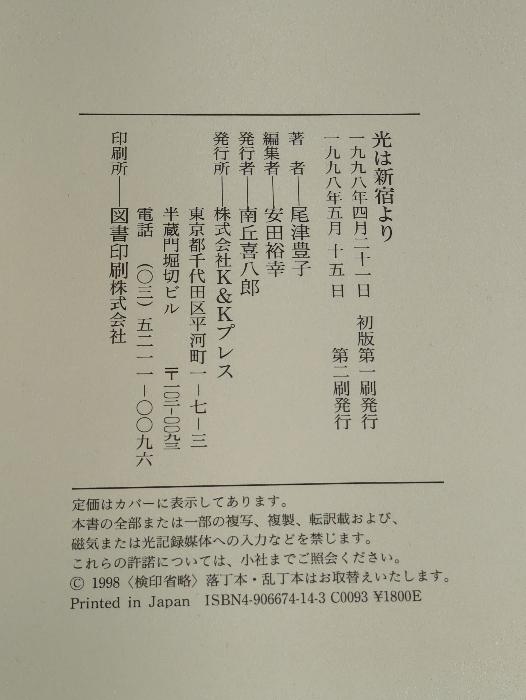 光は新宿より
一九九八年四月二十一日　初版第一刷発行
一九九八年五月十五日　第二刷発行
著　者──尾津豊子
編集者──安田裕幸
発行者──南丘喜八郎
発行所──株式会社K&Kプレス
東京都千代田区平河町一－七－三
半蔵門堀切ビル　〒一〇二－〇〇九三
電話　（〇三）五二一一－〇〇九六
印刷所──図書印刷株式会社
定価はカバーに表示してあります。
本書の全部または一部の複写、複製、転訳載および、
磁気または光記録媒体への入力などを禁じます。
これらの許諾については、小社までご照会ください。
© 1998〈検印省略〉落丁本・乱丁本はお取替えいたします。
Printed in Japan　ISBN4-906674-14-3 C0093 ¥1800E